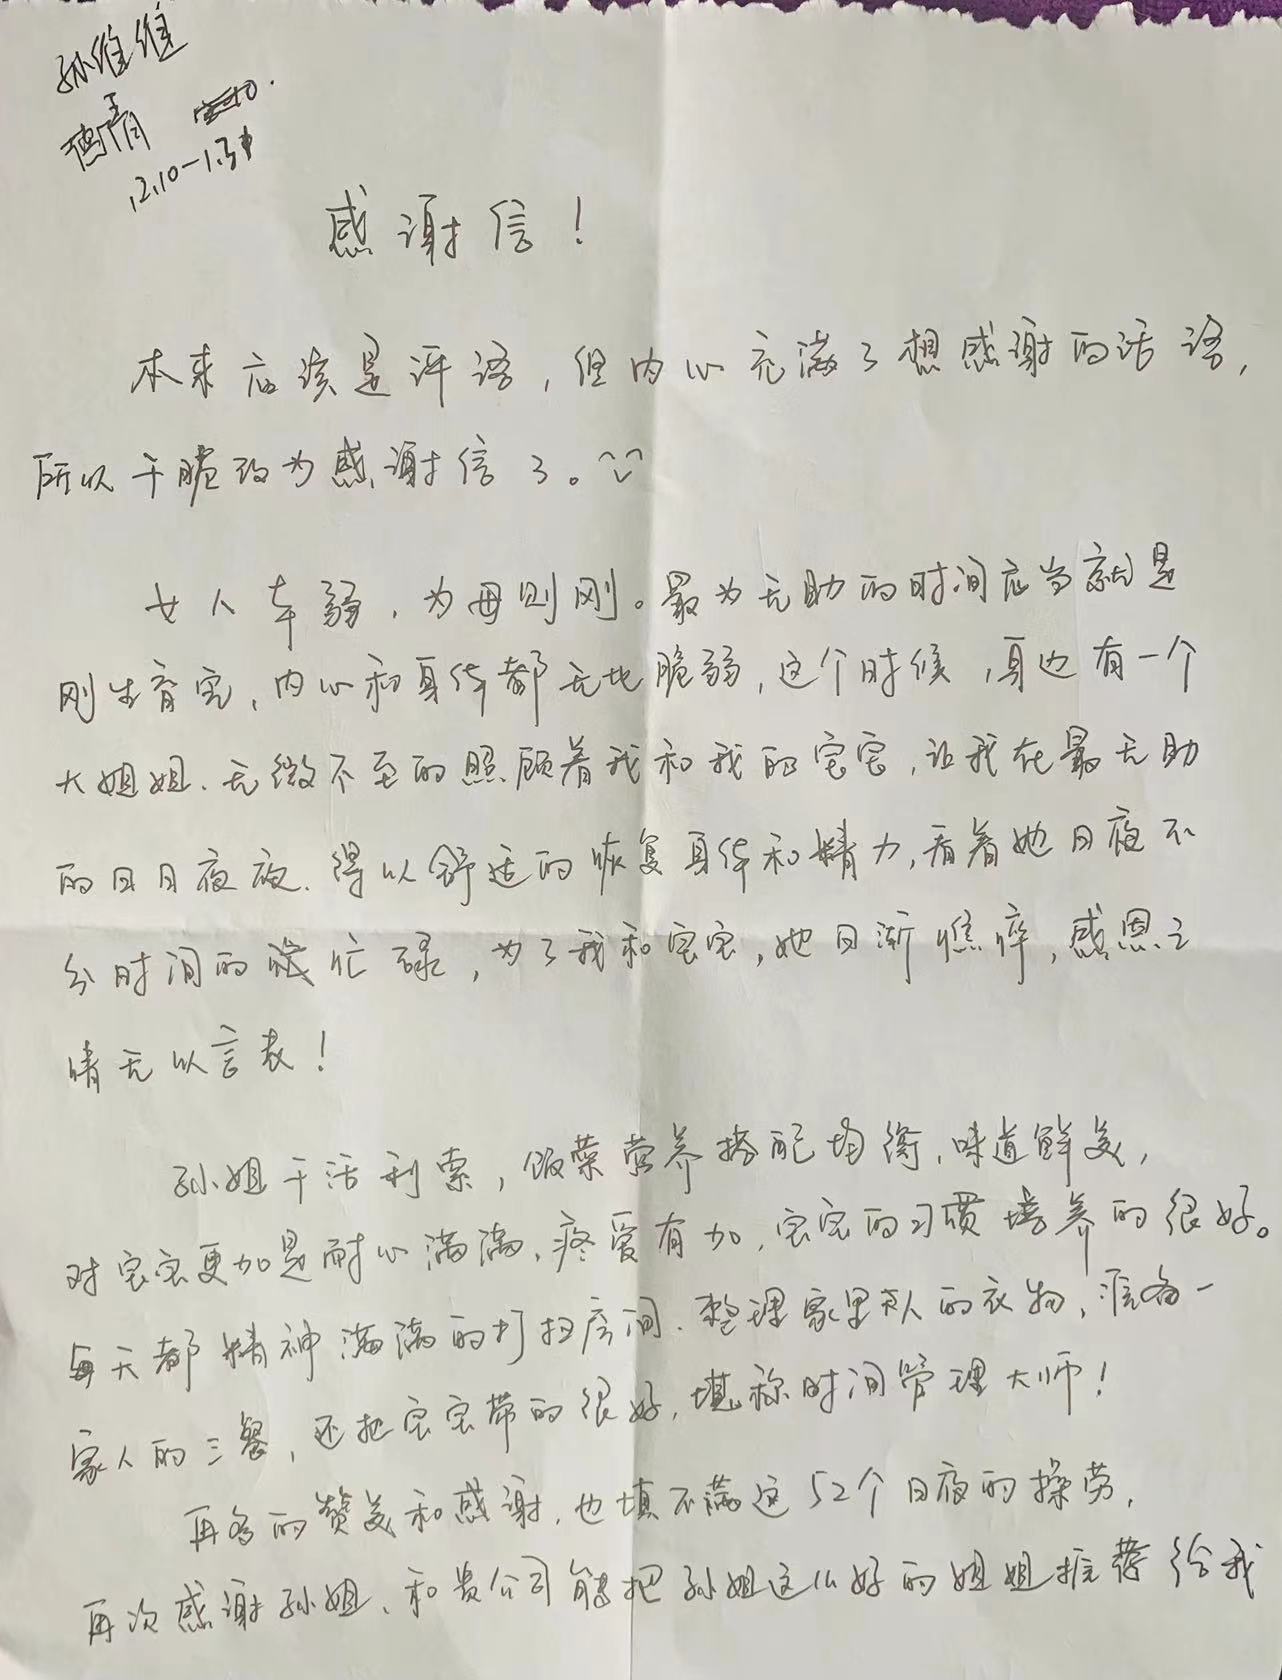 孙维维
德清
12.10-1.31
感谢信！
本来应该是评语，但内心充满了想感谢的话语，
所以干脆改为感谢信了。
女人本弱，为母则刚。最为无助的时间应当就是
刚生育完，内心和身体都无比脆弱，这个时候，身边有一个
大姐姐、无微不至的照顾着我和我的宝宝，让我在最无助
的日日夜夜、得以舒适的恢复身体和精力，看着她日夜不
分时间的忙碌，为了我和宝宝，她日渐憔悴，感恩之
情无以言表！
孙姐干活利索，饭菜营养搭配均衡，味道鲜美，
对宝宝更加是耐心满满、疼爱有加，宝宝的习惯培养的很好。
每天都精神满满的打扫房间、整理家里大人的衣物，准备一
家人的三餐，还把宝宝带的很好，堪称时间管理大师！
再多的赞美和感谢，也填不满这52个日夜的操劳，
再次感谢孙姐、和贵公司能把孙姐这么好的姐姐推荐给我